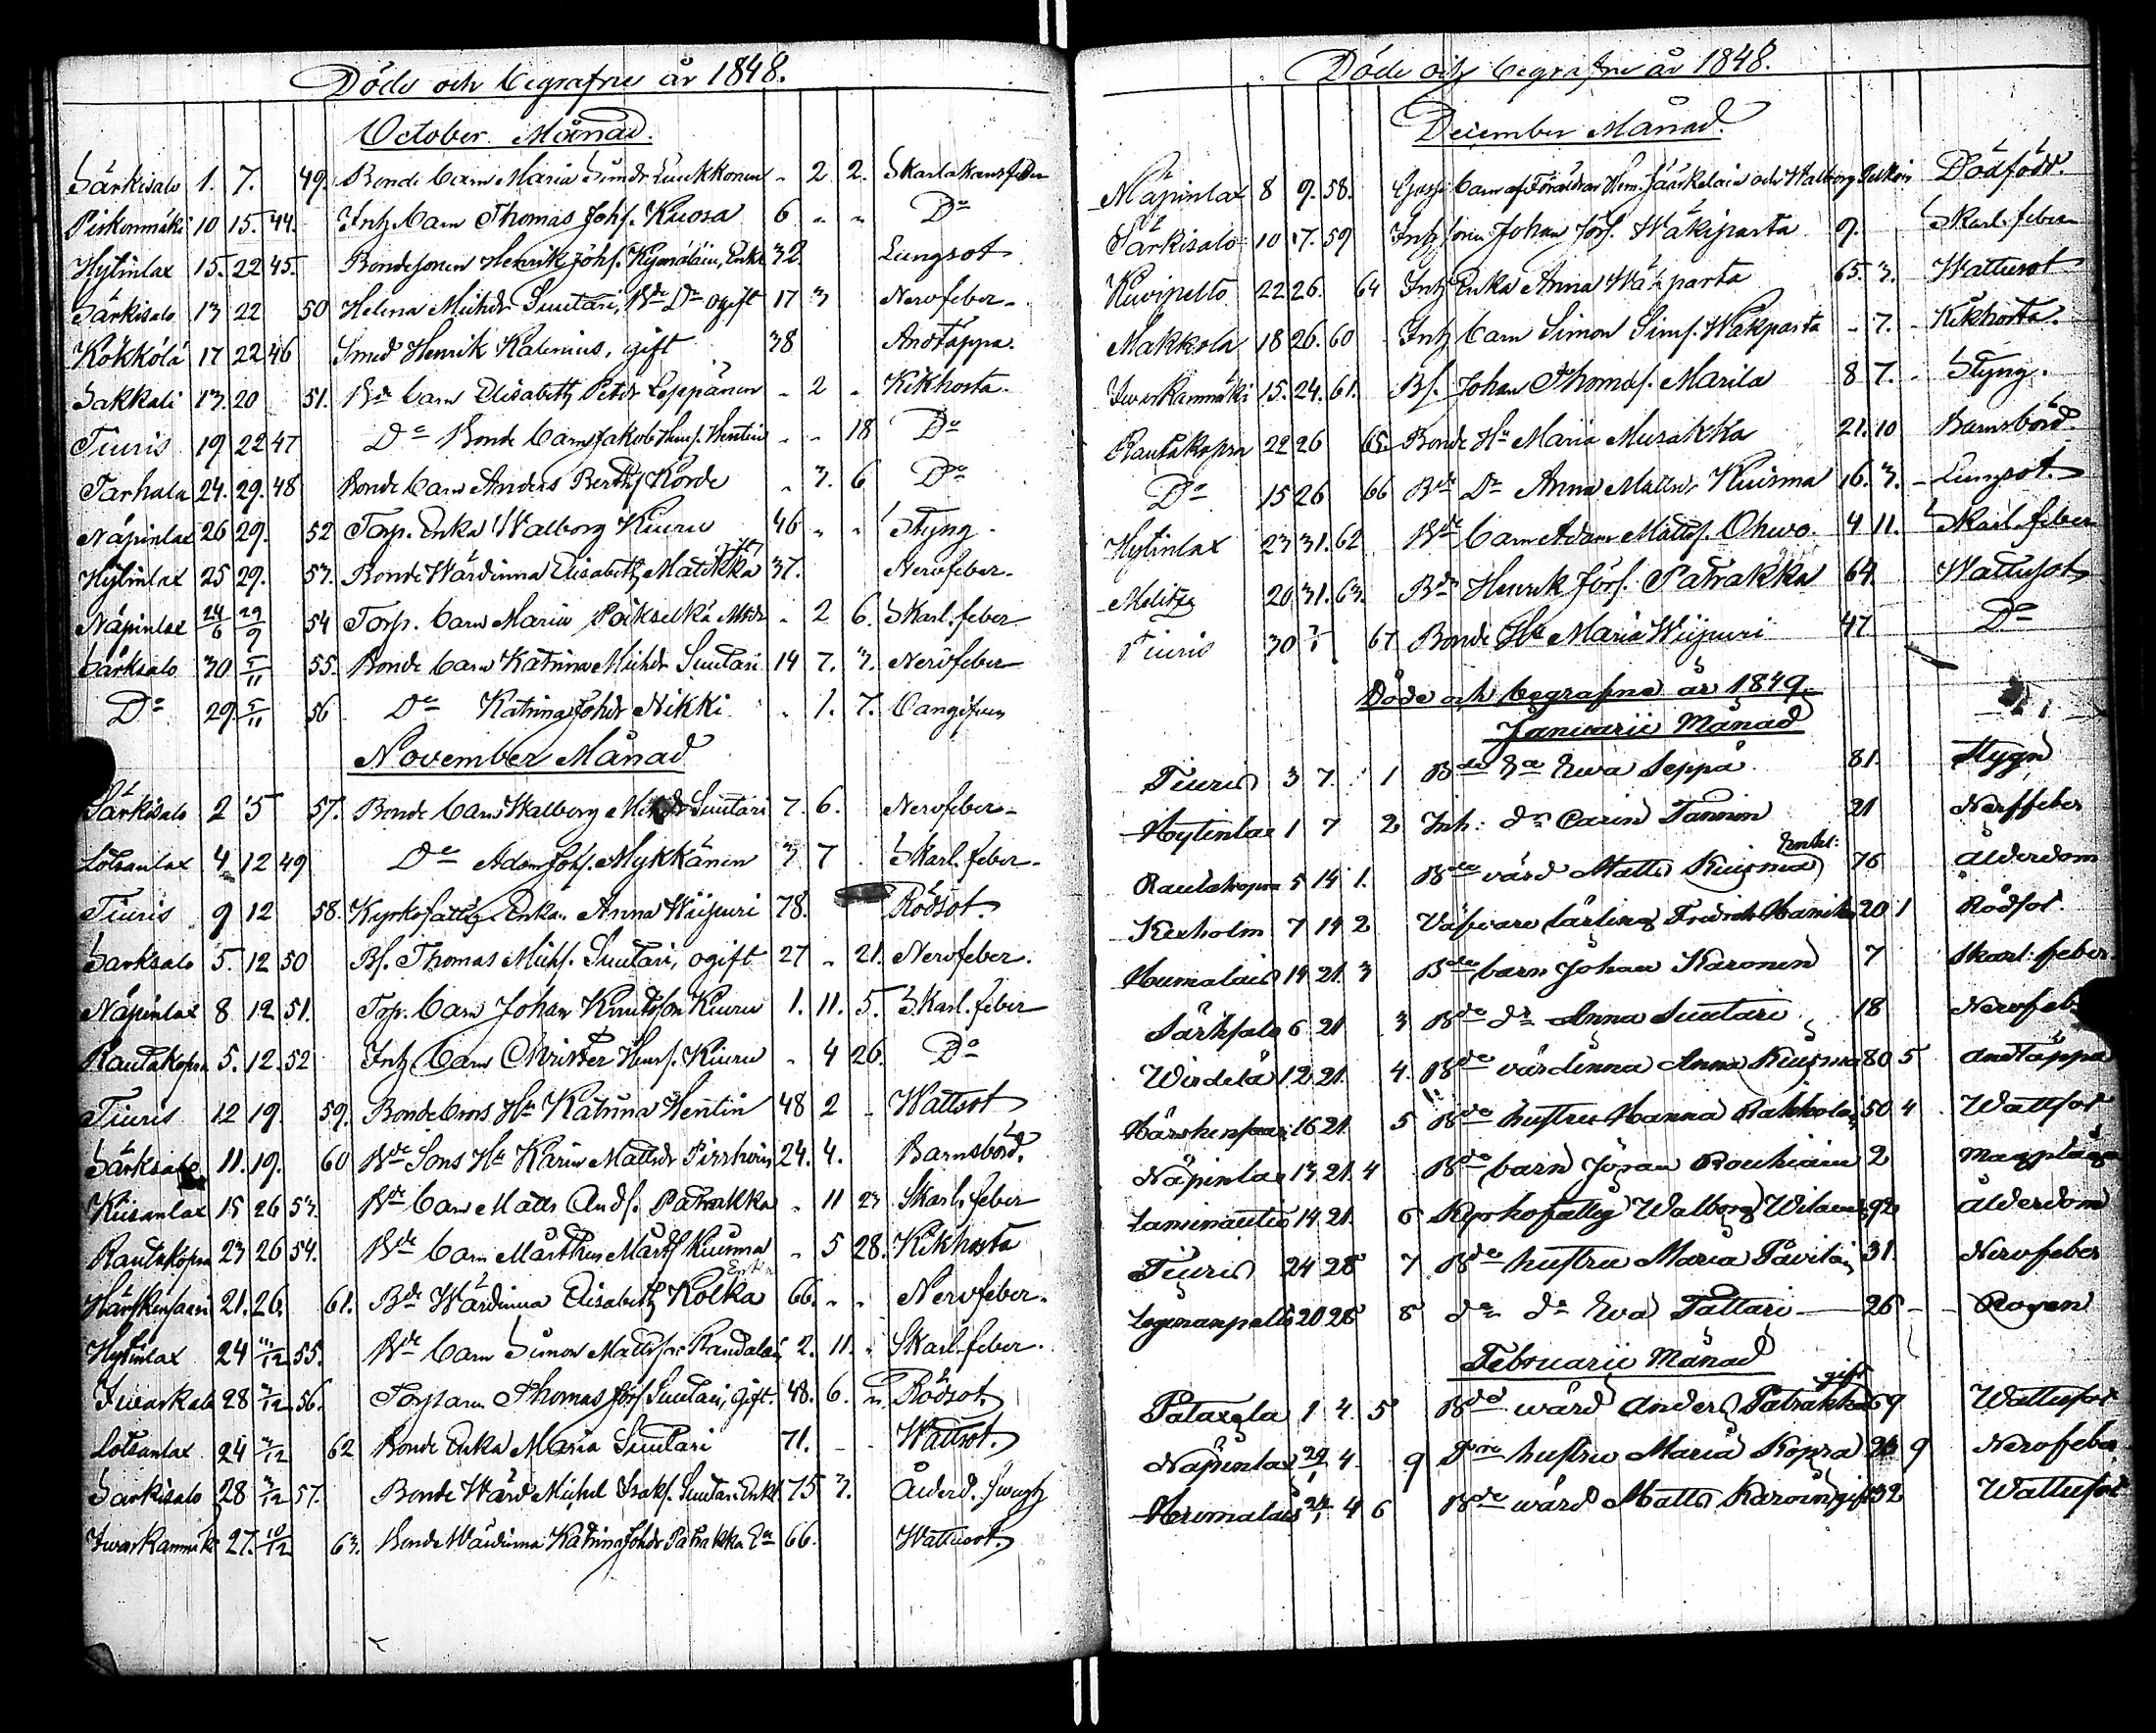 Döde och begrafne år 1848.
October Månad.
Särkisalo 1. 7. 49. Bonde barn Maria Simdr Luukkonen - 2 2. Skarlakansfeber
Piskonmäki 10 15. 44. Inh barn Thomas Johs. Kuosa 6 - - Do
Hytinlax 15. 22 45. Bondesonen Henrik Johs. Enkl 32 Lungsot
Särkisalo 13 22 50 Helena Michdr Suutari, Bde Dr ogift 17 3 Nervfeber
Kökkölä 17 22 46 Smed Henrik Kalenius, gift 38 Andtäppa.
Sakkali 13. 20 51. Bde barn Elisabeth Petdr Leppänen - 2 - Kikhosta.
Tiuris 19 22 47 Do Bonde barn Jakob Hens. Hentin - - 18 Do
Tarhala 24. 29. 48 Bonde barn Anders Berths Korde - 3. 6 Do
Näpinlax 26 29. 52 Torp. Enka Walborg Kiuru 46 - - Styng.
Hytinlax 25 29. 53. Bonde Wärdinna Elisabeth Matikka gift 37. Nervfeber.
Näpinlax 24/6 29/9 54 Torp. barn Maria Poikselkä - 2 6. Skarl. feber
Särksalo 30 5/11 55. Bonde barn Katrina Michdr Suutari 14 7. 3. Nervfeber
Do 29. 5/11 56 Do Katrina Johdr Nikki - 1. 7. Oangifven
November Månad
Särkisalo 2 5 57. Bonde barn Walborg Michdr Suutari 7. 6. Nervfeber
Lötsanlax 4 12 49 Do Adam Johs. Mykkänen 3 7 Skarl. feber
Tiuris 9 12 58. Kyrkofattig Enkan Anna Wiipuri 78. Rödsot.
Särksalo 5. 12 50 Bs. Thomas Michs. Suutari, ogift 27 - 21. Nervfeber.
Näpinlax 8 12 51. Torp. barn Johan Knutsson Kiuru 1. 11. 5. Skarl. feber
Rautakopra 5. 12. 52 Inh barn Christer Hens. Kiuru - 4 26. Do
Tiuris 12 19. 59. Bonde Hu Katrina Hentin 48 2 - Wattsot
Särksalo 11. 19. 60 Bde Sons Hu Karin Mattsdr 24. 4. Barnsbörd.
Kiisanlax 15 26 53. Bde barn Matts Ands. Patrakka - 11 23 Skarl. feber
Rautakopra 23 26 54. Bde barn Marthin Marts Kuisma - 5 28. Kikhosta
Härskinsaari 21. 26. 61. Bde Wärdinna Elisabeth Kolka Enka 66. - - Nervfeber.
Hytinlax 24 /12 55. Bde barn Simon Mattsson 2. 11. - Skarl. feber.
28 3/12 56. Torparen Thomas Jörs Suutari, gift. 48. 6. Rödsot.
Lotsanlax 24 3/12 62 Bonde Enka Maria Suutari 71. - - Wattsot.
Särkisalo 28 3/12 57. Bonde Wärd Michel Isaks. Suutari Enkl. 75 3. Ålderd. Swagh
Iwaskanmäki 27. 10/12 63. Bonde Wärdinna Katrina Johdr Patrakka Ea 66. Wattusot.
Döde och begrafne år 1848.
December Månad.
Näpinlax 8 9. 58. barn af Föräldrar Hem. Jääskeläin och Walborg Dödfödd.
Särkisalo 10 17. 59 Inh son Johan Jörs. Wäkiparta 9. Skarl. feber
Kuvipelto 22 26. 64 Inh Enka Anna Wäkparta 65. 3. Wattusot
Makkola 18 26. 60 Inh barn Simon Sims. Wäkparta - 7. - Kikhosta.
Iwaskanmäki 15. 24. 61. Bs. Johan Thomas. Marila 8 7. - Styng.
Rautakopra 22 26 65 Bonde Hu Maria Musakka 21. 10 Barnsbörd.
Do 15 26 66 Bde Dr Anna Mattsdr Kuisma 16. 3. - Lungsot.
Hytinlax 23 31. 62 Bde barn Adam Matts. Ohwo. 4 11. Skarl. feber
Melitza 20. 31. 63. Bdn Henrik Jörs. Patrakka 64. Wattusot
Tiuris 30 67 Bonde Hu Maria Wiipuri 47. Do
Döde och begrafne år 1849.
Januarii Månad
Tiuris 3 7. 1 Bde Ea Ewa Seppä 81. Stygn
Hytinlax 1 7 2 Inh: dr Carin Tanninen 21 Nerffeber
Rautakopra 5 14 1. Bde värd Matts Kuisma Enkl: 76 Ålderdom
Kexholm 7 14 2 lärling Fredrik 20 1 Rödsot.
Humalais 14 21. 3 Bde barn Johan Karonen 7 Skarl: feber
Särksalo 6 21 3 Bde dr Anna Suutari 18 Nervfeb.
12 21. 4. Bde värdinna Anna Kuisma 80 5 Andtäppa
16 21. 5 Bde hustru Hanna 50 4 Wattsot
Näpinlax 13 21. 4 Bde barn Jöran Rouhiain 2 Magplåga
14 21. 6 Kyrkofattig Walborg 92 Ålderdom
Tiuris 24 28 7 Bde hustru Maria 31. Nervfeber
20 28 8 do do Ewa Tattari 26 - -
Februarii Månad
1 4. 5 Bde wärd Anders Patrakka gift 69 Wattusot
Näpinlax 29/1 4. 9 hustru Maria Kopra 26 9 Nervfeber
Humalais 4 6 Bde wärd Matts gift 32 Wattusot